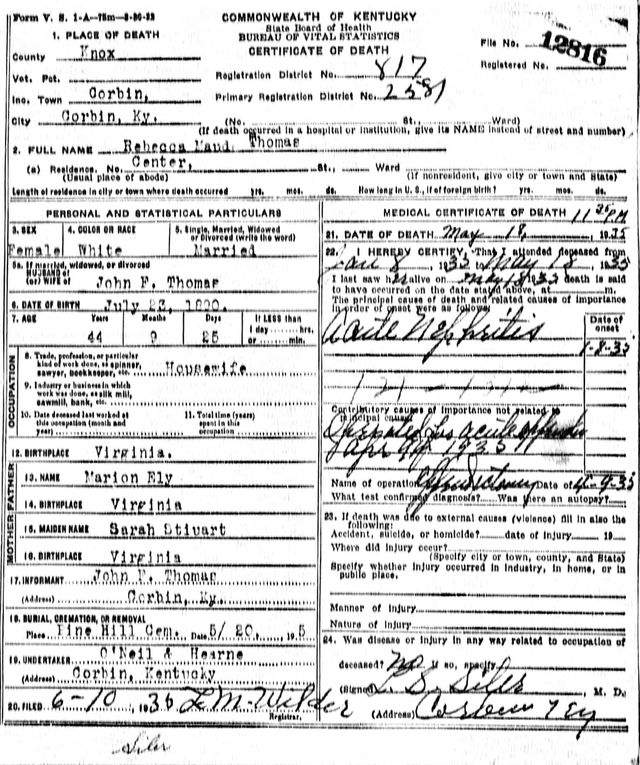 Form V. S. 1-A—75m—8-30-32
COMMONWEALTH OF KENTUCKY
State Board of Health
BUREAU OF VITAL STATISTICS
CERTIFICATE OF DEATH
File No. 12816
Registered No.
1. PLACE OF DEATH
County Knox
Vot. Pct.
Inc. Town Corbin,
City Corbin, Ky.
Registration District No. 817
Primary Registration District No. 2581
(No. St., Ward)
(If death occurred in a hospital or institution, give its NAME instead of street and number)
2. FULL NAME Rebecca Maud Thomas
(a) Residence. No. Center, St., Ward
(Usual place of abode) (If nonresident, give city or town and State)
Length of residence in city or town where death occurred yrs. mos. ds. How long in U. S., if of foreign birth? yrs. mos. ds.
PERSONAL AND STATISTICAL PARTICULARS
3. SEX 4. COLOR OR RACE 5. Single, Married, Widowed or Divorced (write the word)
Female White Married
5a. If married, widowed, or divorced
HUSBAND of
(or) WIFE of John F. Thomas
6. DATE OF BIRTH July 23,
7. AGE Years Months Days If LESS than
44 9 25 1 day hrs.
or min.
OCCUPATION
8. Trade, profession, or particular
kind of work done, as spinner,
sawyer, bookkeeper, etc. Housewife
9. Industry or business in which
work was done, as silk mill,
sawmill, bank, etc.
10. Date deceased last worked at
this occupation (month and
year)
11. Total time (years)
spent in this
occupation
12. BIRTHPLACE Virginia.
MOTHER FATHER
13. NAME Marion Ely
14. BIRTHPLACE Virginia
15. MAIDEN NAME Sarah Stivart
16. BIRTHPLACE Virginia
17. INFORMANT John F. Thomas
(Address) Corbin, Ky.
18. BURIAL, CREMATION, OR REMOVAL
Place Pine Hill Cem. Date 5/ 20, 195
19. UNDERTAKER O'Neil & Hearne
Corbin, Kentucky
20. FILED 6-10, 1935 L.M. Wilder
Registrar.
MEDICAL CERTIFICATE OF DEATH 11 25 PM
21. DATE OF DEATH May 18, 1935
22. I HEREBY CERTIFY, That I attended deceased from
Jan 8, 1935 to May 18, 1935
I last saw h alive on May 18 1935 death is said
to have occurred on the date stated above, at m.
The principal cause of death and related causes of importance
in order of onset were as follows:
Date of
onset
Acute Nephritis
1-8-35
Contributory causes of importance not related to
principal cause:
Operated for acute
Apr 9th 1935
Name of operation Date of 4-9-35
What test confirmed diagnosis? Was there an autopsy?
23. If death was due to external causes (violence) fill in also the
following:
Accident, suicide, or homicide? date of injury 19
Where did injury occur?
(Specify city or town, county, and State)
Specify whether injury occurred in industry, in home, or in
public place.
Manner of injury
Nature of injury
24. Was disease or injury in any way related to occupation of
deceased? no If so, specify
(Signed) L. S. Siler, M. D.
(Address) Corbin Ky
Siler